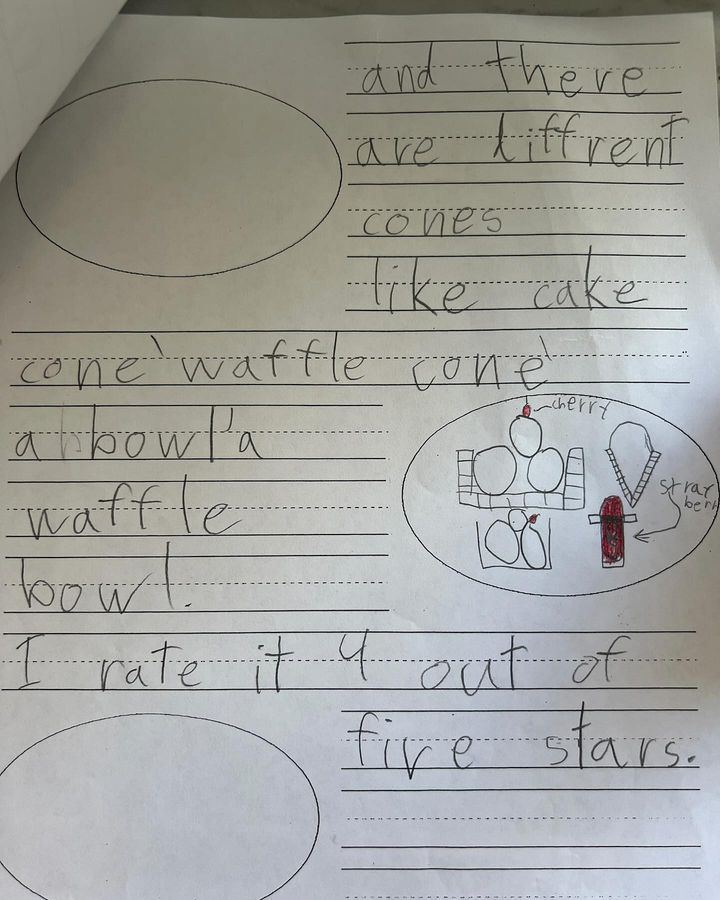 and there
are diffrent
cones
like cake
cone' waffle cone'
a bowl' a
waffle
bowl.
cherry
straw
berry
I rate it 4 out of
five stars.